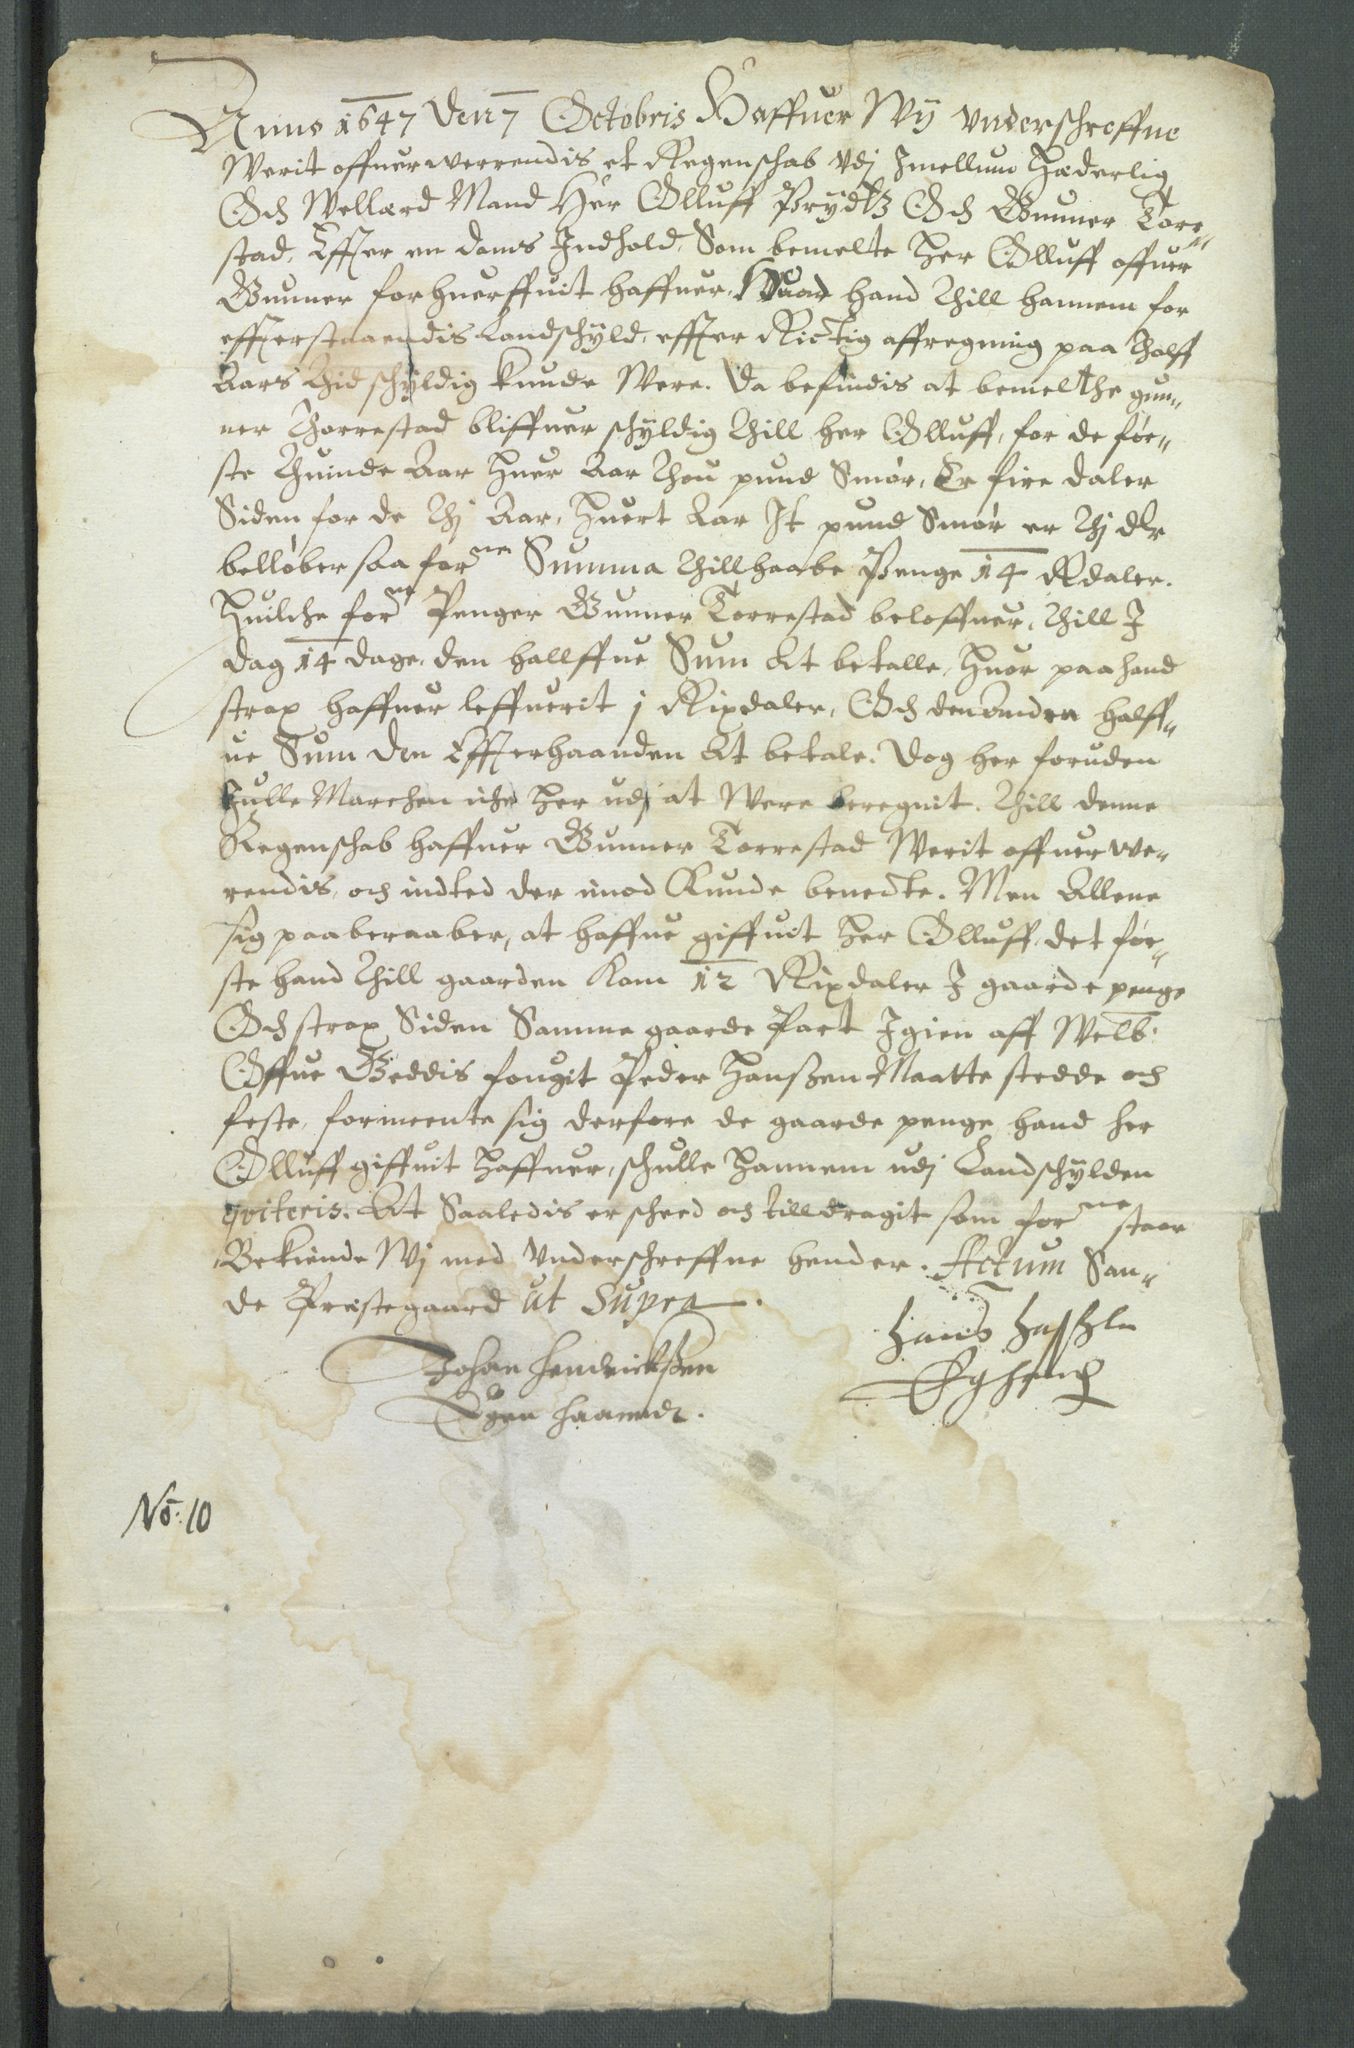 Anno 1647 den 7 Octobris Haffuer Wij vnderschreffne
Werit offuerwerrendis et Regenschab vdj Jmellum Hæderlig
Och Wellærd Mand Her Olluff Prydtz Och Gunner Torre„
stad, Effter en doms Jndhold, Som bemelte Her Olluff offuer
Gunner forhuerffuit haffuer, Huad hand Thill hannem for
effterstaaendis Landschyld, effter Rictig affregning paa Tholff
Aars Thid schyldig kunde Were. Da befindis at bemelthe gun„
ner Thorrestad bliffuer schyldig Thill her Olluff, for de før„
ste Thuinde Aar Huer Aar Thou pund Smør, Er fire daler
Siden for de Thj Aar, Huert Aar It pund Smør er Thj dlr
belløber saa forne Summa Thillhaabe Penge 14 Rdaler.
Huilche forne Penger Gunner Torrestad beloffuer, Thill J
dag 14 dage, den hallffue Sum At betalle, Huor paa hand
strax haffuer leffuerit j Rixdaler, Och den Anden halff„
ue Sum den Effterhaanden At betale. Dog her foruden
Julle Marchen iche Her udj at Were beregnit. Thill denne
Regenschab haffuer Gunner Torrestad Werit offuerwe„
rendis, och indted der imod Kunde benecte. Men Allene
sig paaberaaber, at haffue giffuit Her Olluff, det før„
ste hand Thill gaarden Kom 12 Rixdaler J gaarde penge
Och strax Siden Samme gaarde Part Jgien aff Welb:
Offue Geddis fougit Peder Hanßen Maatte stedde och
feste, formeente sig derfore de gaarde penge hand her
Olluff giffuit Haffuer, schulle Hannem udj Landschylden
qviteris. At Saaledis er scheed och tilldragit som forne staar
Bekiende Wj med Vnderschreffne hender. Actum San„
de Præstegaard ut Supra.
Johan Hendrickßen
Egen haanndt.
Hans
Eghend
No: 10